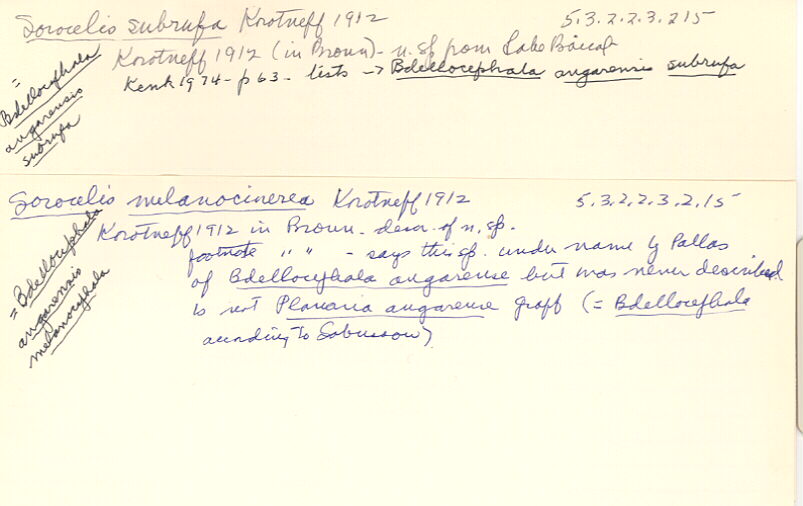 Sorocelis subrufa Korotneff 1912
5.3.2.2.3.215
Korotneff 1912 (in Broun) - n. sp from Lake Baical
Kenk 1974 - p 63 - lists -> Bdellocephala angarensis subrufa
=
Bdellocephala
angarensis
subrufa
Sorocelis melanocinerea Korotneff 1912
5.3.2.2.3.2.15
Korotneff 1912 in Broun - descr. of n. sp.
footnote " " - says this sp. under name of Pallas
of Bdellocephala angarense but was never described
Is not Planaria angarense Graff (= Bdellocephala
according to Sabussow)
= Bdellocephala
angarensis
melanocephala